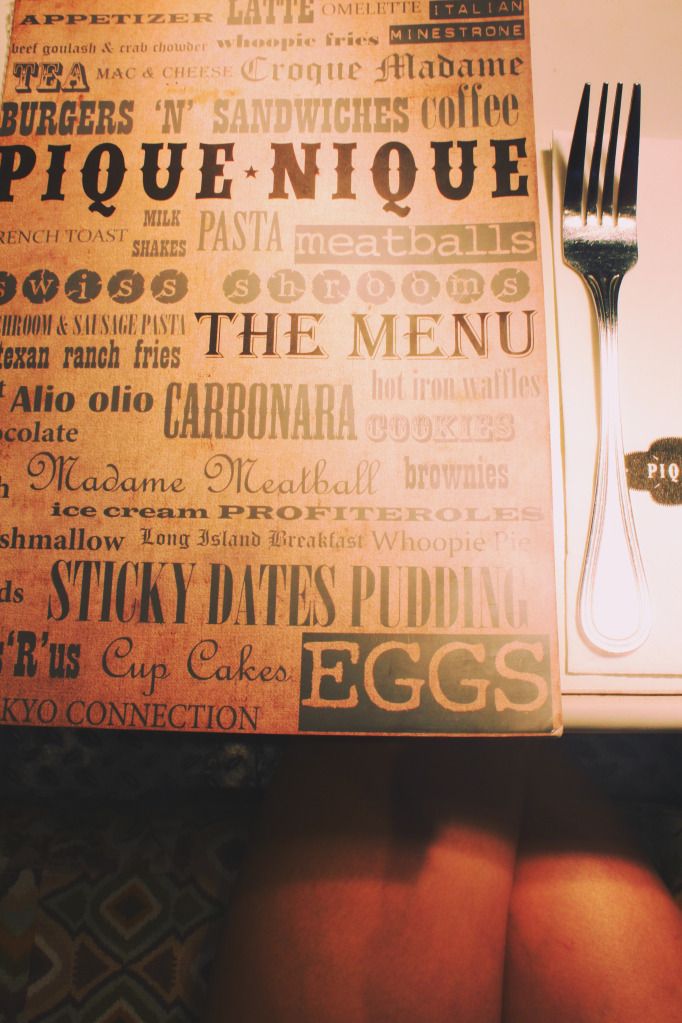 APPETIZER LATTE OMELETTE ITALIAN
beef goulash & crab chowder whoopie fries MINESTRONE
TEA MAC & CHEESE Croque Madame
BURGERS 'N' SANDWICHES coffee
PIQUE ★ NIQUE
RENCH TOAST MILK SHAKES PASTA meatballs
swiss shrooms
SHROOM & SAUSAGE PASTA THE MENU
texan ranch fries
Alio olio CARBONARA hot iron waffles
ocolate COOKIES
h Madame Meatball brownies
ice cream PROFITEROLES
shmallow Long Island Breakfast Whoopie Pie
ds STICKY DATES PUDDING
s 'R' us Cup Cakes EGGS
KYO CONNECTION
PIQ